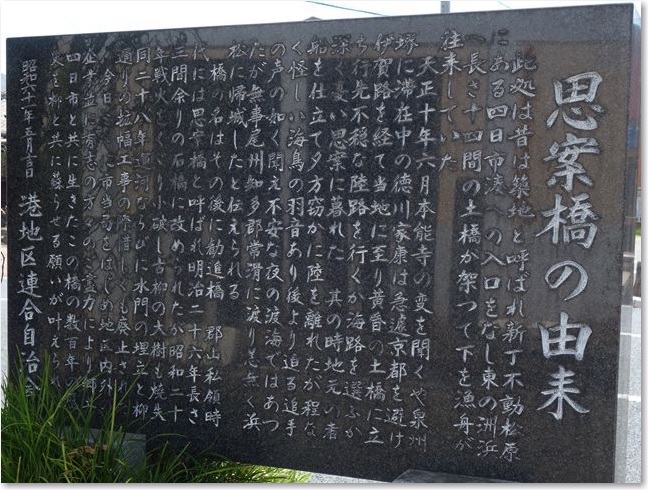 思案橋の由来
此処は昔は築地と呼ばれ新丁不動松原
にある四日市湊への入口をなし東の洲浜
へ長さ十四間の土橋が架つて下を漁舟が
往来していた
天正十年六月本能寺の変を聞くや泉州
堺に滞在中の徳川家康は急遽京都を避け
伊賀路を経て当地に至り黄昏の土橋に立
ち行先不穏な陸路を行くか海路を選ぶか
深く憂い思案に暮れた 其の時地元い者
船を仕立て夕方窃かに陸を離れたが程な
く怪しい海鳥の羽音あり後より迫る追手
の声の如く聞え不安な夜の渡海ではあつ
たが無事尾州知多郡常滑に渡り恙無く浜
松に帰城したと伝えられる
橋の名はその後に勧進橋 郡山私領時
代には思案橋と呼ばれ明治二十六年長さ
三間余りの石橋に改められたが昭和二十
年戦火を 小破し古柳の大樹も焼失
同二十八年運河ならびに水門の埋立と柳
通りの拡幅工事の 惜しくも廃止され
今日 市当局をはじめ地区内外
企業並に有志の方 の 力により郷土
四日市と共に生きたこの橋の数百年の
を柳と共に蘇らせる願いが叶えられ
昭和六十一年五月吉日 港地区連合自治会